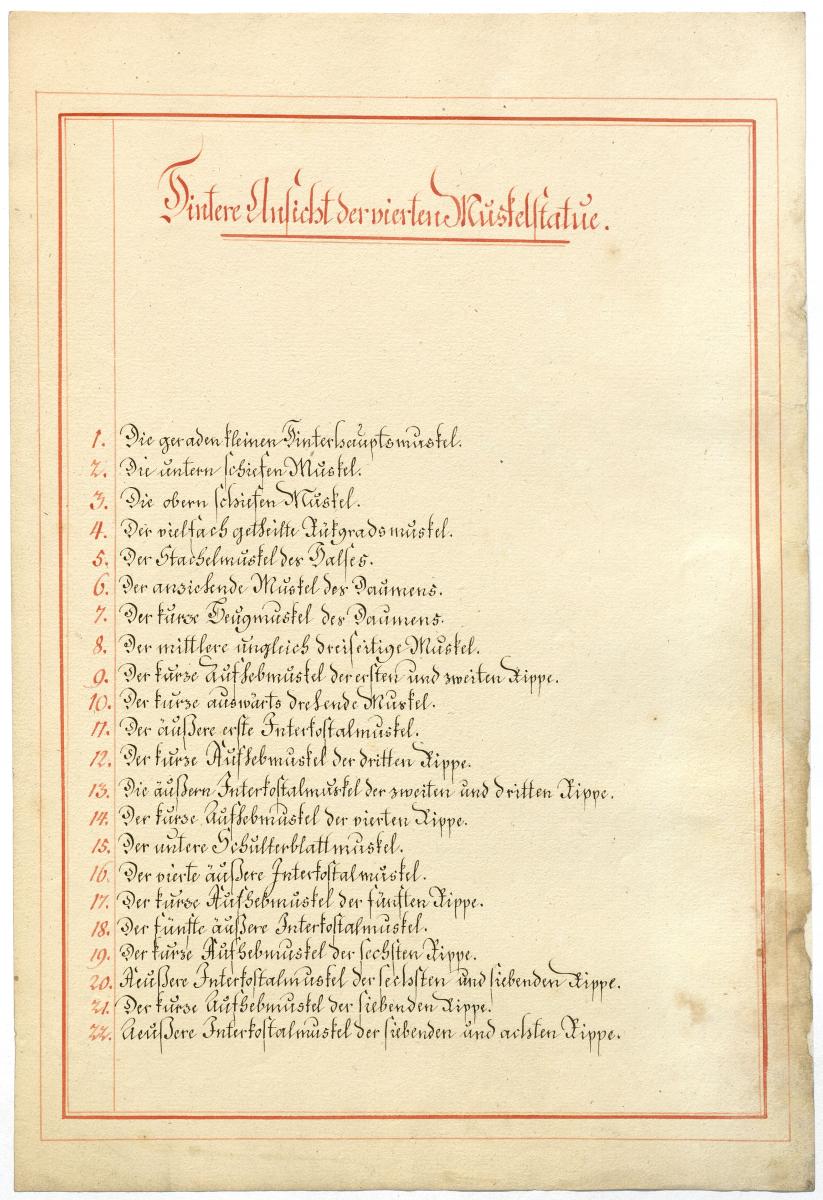 Hintere Ansicht der vierten Muskelstatue.
1. Die geraden kleinen Hinterhauptsmuskel.
2. Die untern schiefen Muskel.
3. Die obern schiefen Muskel.
4. Der vielfach getheilte Rükgradsmuskel.
5. Der Stachelmuskel des Halses.
6. Der anziehende Muskel des Daumens.
7. Der kurze Beugmuskel des Daumens.
8. Der mittlere ungleich dreiseitige Muskel.
9. Der kurze Aufhebmuskel der ersten und zweiten Rippe.
10. Der kurze auswärts drehende Muskel.
11. Der äußere erste Interkostalmuskel.
12. Der kurze Aufhebmuskel der dritten Rippe.
13. Die äußern Interkostalmuskel der zweiten und dritten Rippe.
14. Der kurze Aufhebmuskel der vierten Rippe.
15. Der untere Schulterblattmuskel.
16. Der vierte äußere Interkostalmuskel.
17. Der kurze Aufhebmuskel der fünften Rippe.
18. Der fünfte äußere Interkostalmuskel.
19. Der kurze Aufhebmuskel der sechsten Rippe.
20. Aeußere Interkostalmuskel der sechsten und siebenden Rippe.
21. Der kurze Aufhebmuskel der siebenden Rippe.
22. Aeußere Interkostalmuskel der siebenden und achten Rippe.